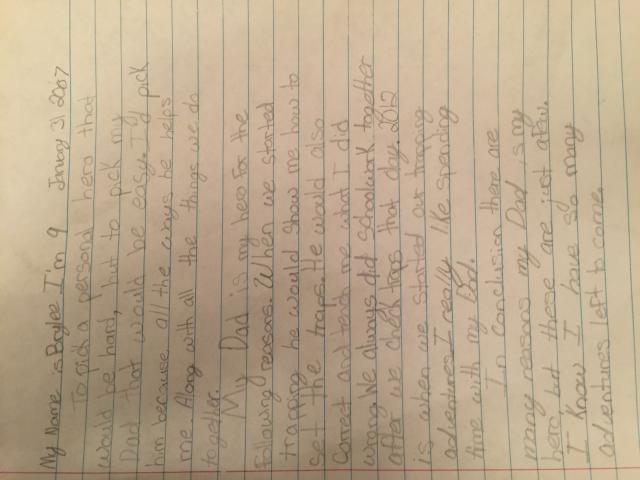 My Name is Baylee I'm 9 January 31, 2007
To pick a personal hero that
would be hard, but to pick my
Dad that would be easy. I'd pick
him because all the ways he helps
me. Along with all the things we do
together.
My Dad is my hero for the
following reasons. When we started
trapping he would show me how to
set the traps. He would also
correct and teach me what I did
wrong. We always did schoolwork together
after we check traps that day. 2012
is when we started our trapping
adventures. I really like spending
time with my Dad.
In conclusion there are
many reasons my Dad is my
hero but these are just a few.
I know I have so many
adventures left to come.